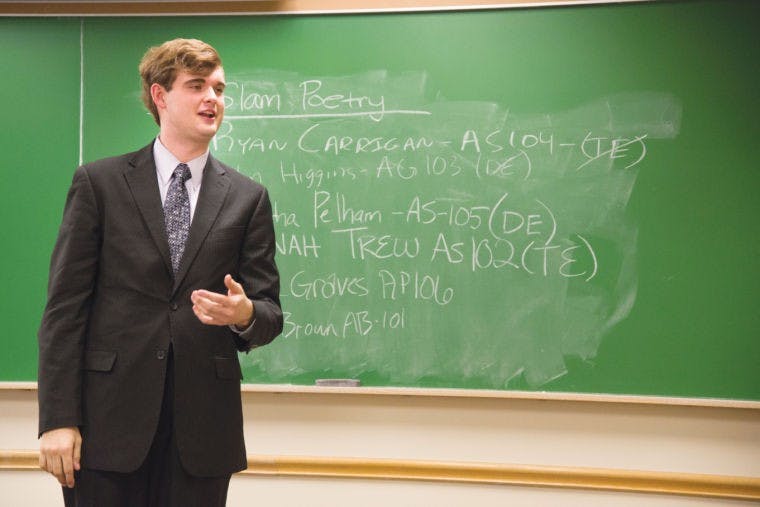 Slam Poetry
RYAN CARRIGAN - AS 104 - (TE)
Higgins - AG 103 (DE)
Pelham - AS-105 (DE)
NAH TREW AS102 (TE)
Graves AP106
Brown AB-101